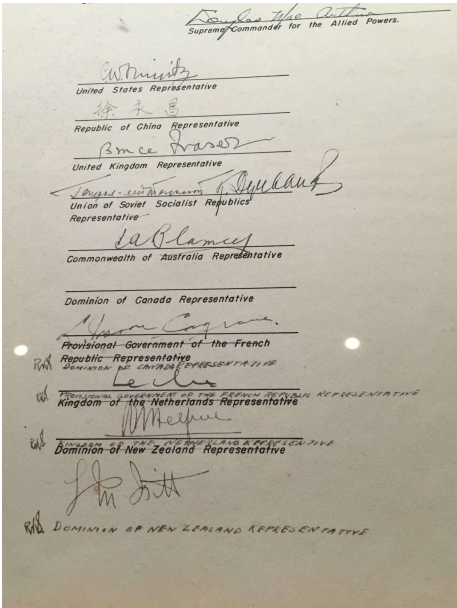 Douglas MacArthur
Supreme Commander for the Allied Powers.
C.W. Nimitz
United States Representative
徐永昌
Republic of China Representative
Bruce Fraser
United Kingdom Representative
Генерал-лейтенант К. Деревянко
Union of Soviet Socialist Republics
Representative
T.A. Blamey
Commonwealth of Australia Representative
Dominion of Canada Representative
Moore Cosgrave
Provisional Government of the French
Republic Representative
DOMINION OF CANADA REPRESENTATIVE
Leclerc
PROVISIONAL GOVERNMENT OF THE FRENCH REPUBLIC REPRESENTATIVE
Kingdom of the Netherlands Representative
Helfrich
KINGDOM OF THE NETHERLAND REPRESENTATIVE
Dominion of New Zealand Representative
L M Isitt
DOMINION OF NEW ZEALAND REPRESENTATIVE